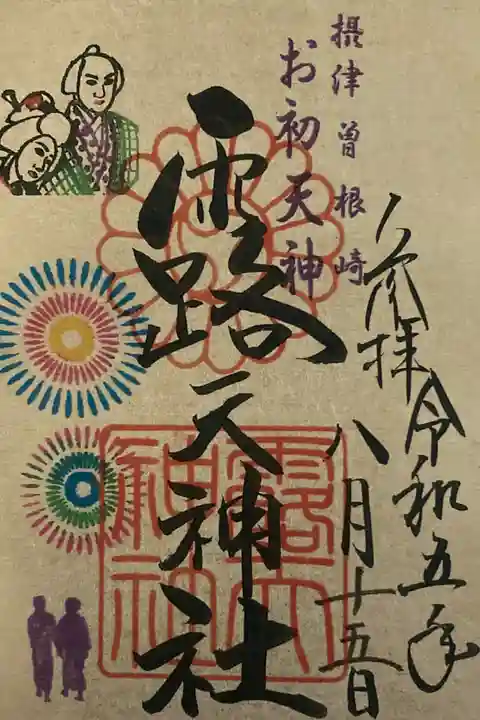 摂津曽根崎
お初天神
参拝
令和五年
八月十五日
露天神社
露天神社